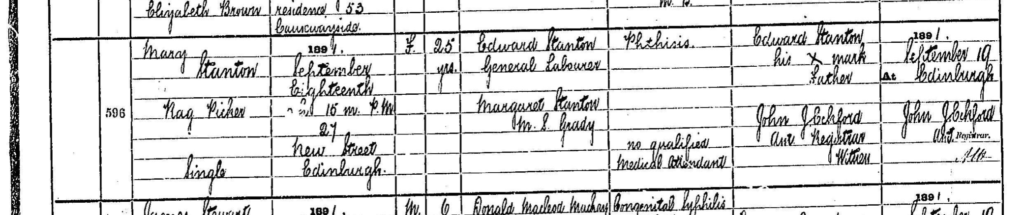 Elizabeth Brown residence 53
Causewayside.
Mary 1891. F. 25 Edward Stanton Phthisis. Edward Stanton 1891.
Stanton September yrs. General Labourer his X mark September 19
Eighteenth Father At Edinburgh
596 Rag Picker 15 m. P.M. Margaret Stanton
27 M.S. Grady John J. Echford John J. Echford
New Street no qualified Asst. Registrar Asst. Registrar.
Single Edinburgh. Medical Attendant Witness
James Stewart 1891. M. 6 Donald Macleod Mackay Congenital Syphilis 1891.